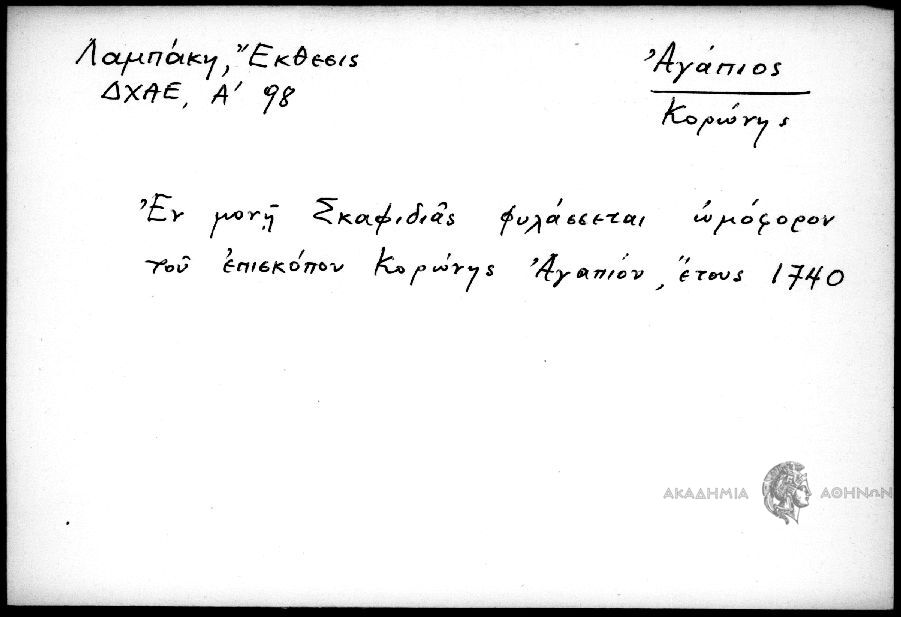 Λαμπάκη, Ἔκθεσις
ΔΧΑΕ, Α' 98
Ἀγάπιος
Κορώνης
Ἐν μονῇ Σκαφιδιᾶς φυλάσσεται ὠμόφορον
τοῦ ἐπισκόπου Κορώνης Ἀγαπίου, ἔτους 1740
ΑΚΑΔΗΜΙΑ ΑΘΗΝΩΝ